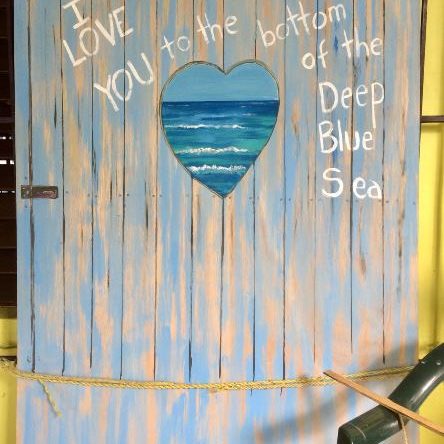 I
LOVE
YOU to the bottom
of the
Deep
Blue
Sea